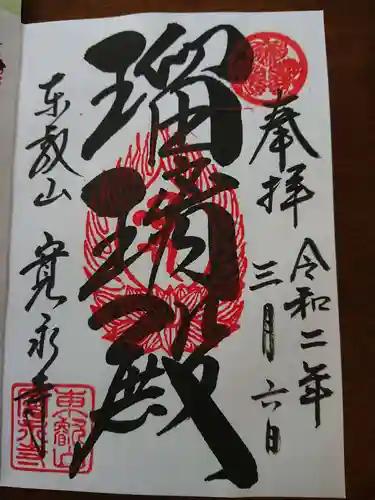 奉拝
令和二年
三月六日
瑠璃殿
東叡山
寛永寺
東叡山
寛永寺